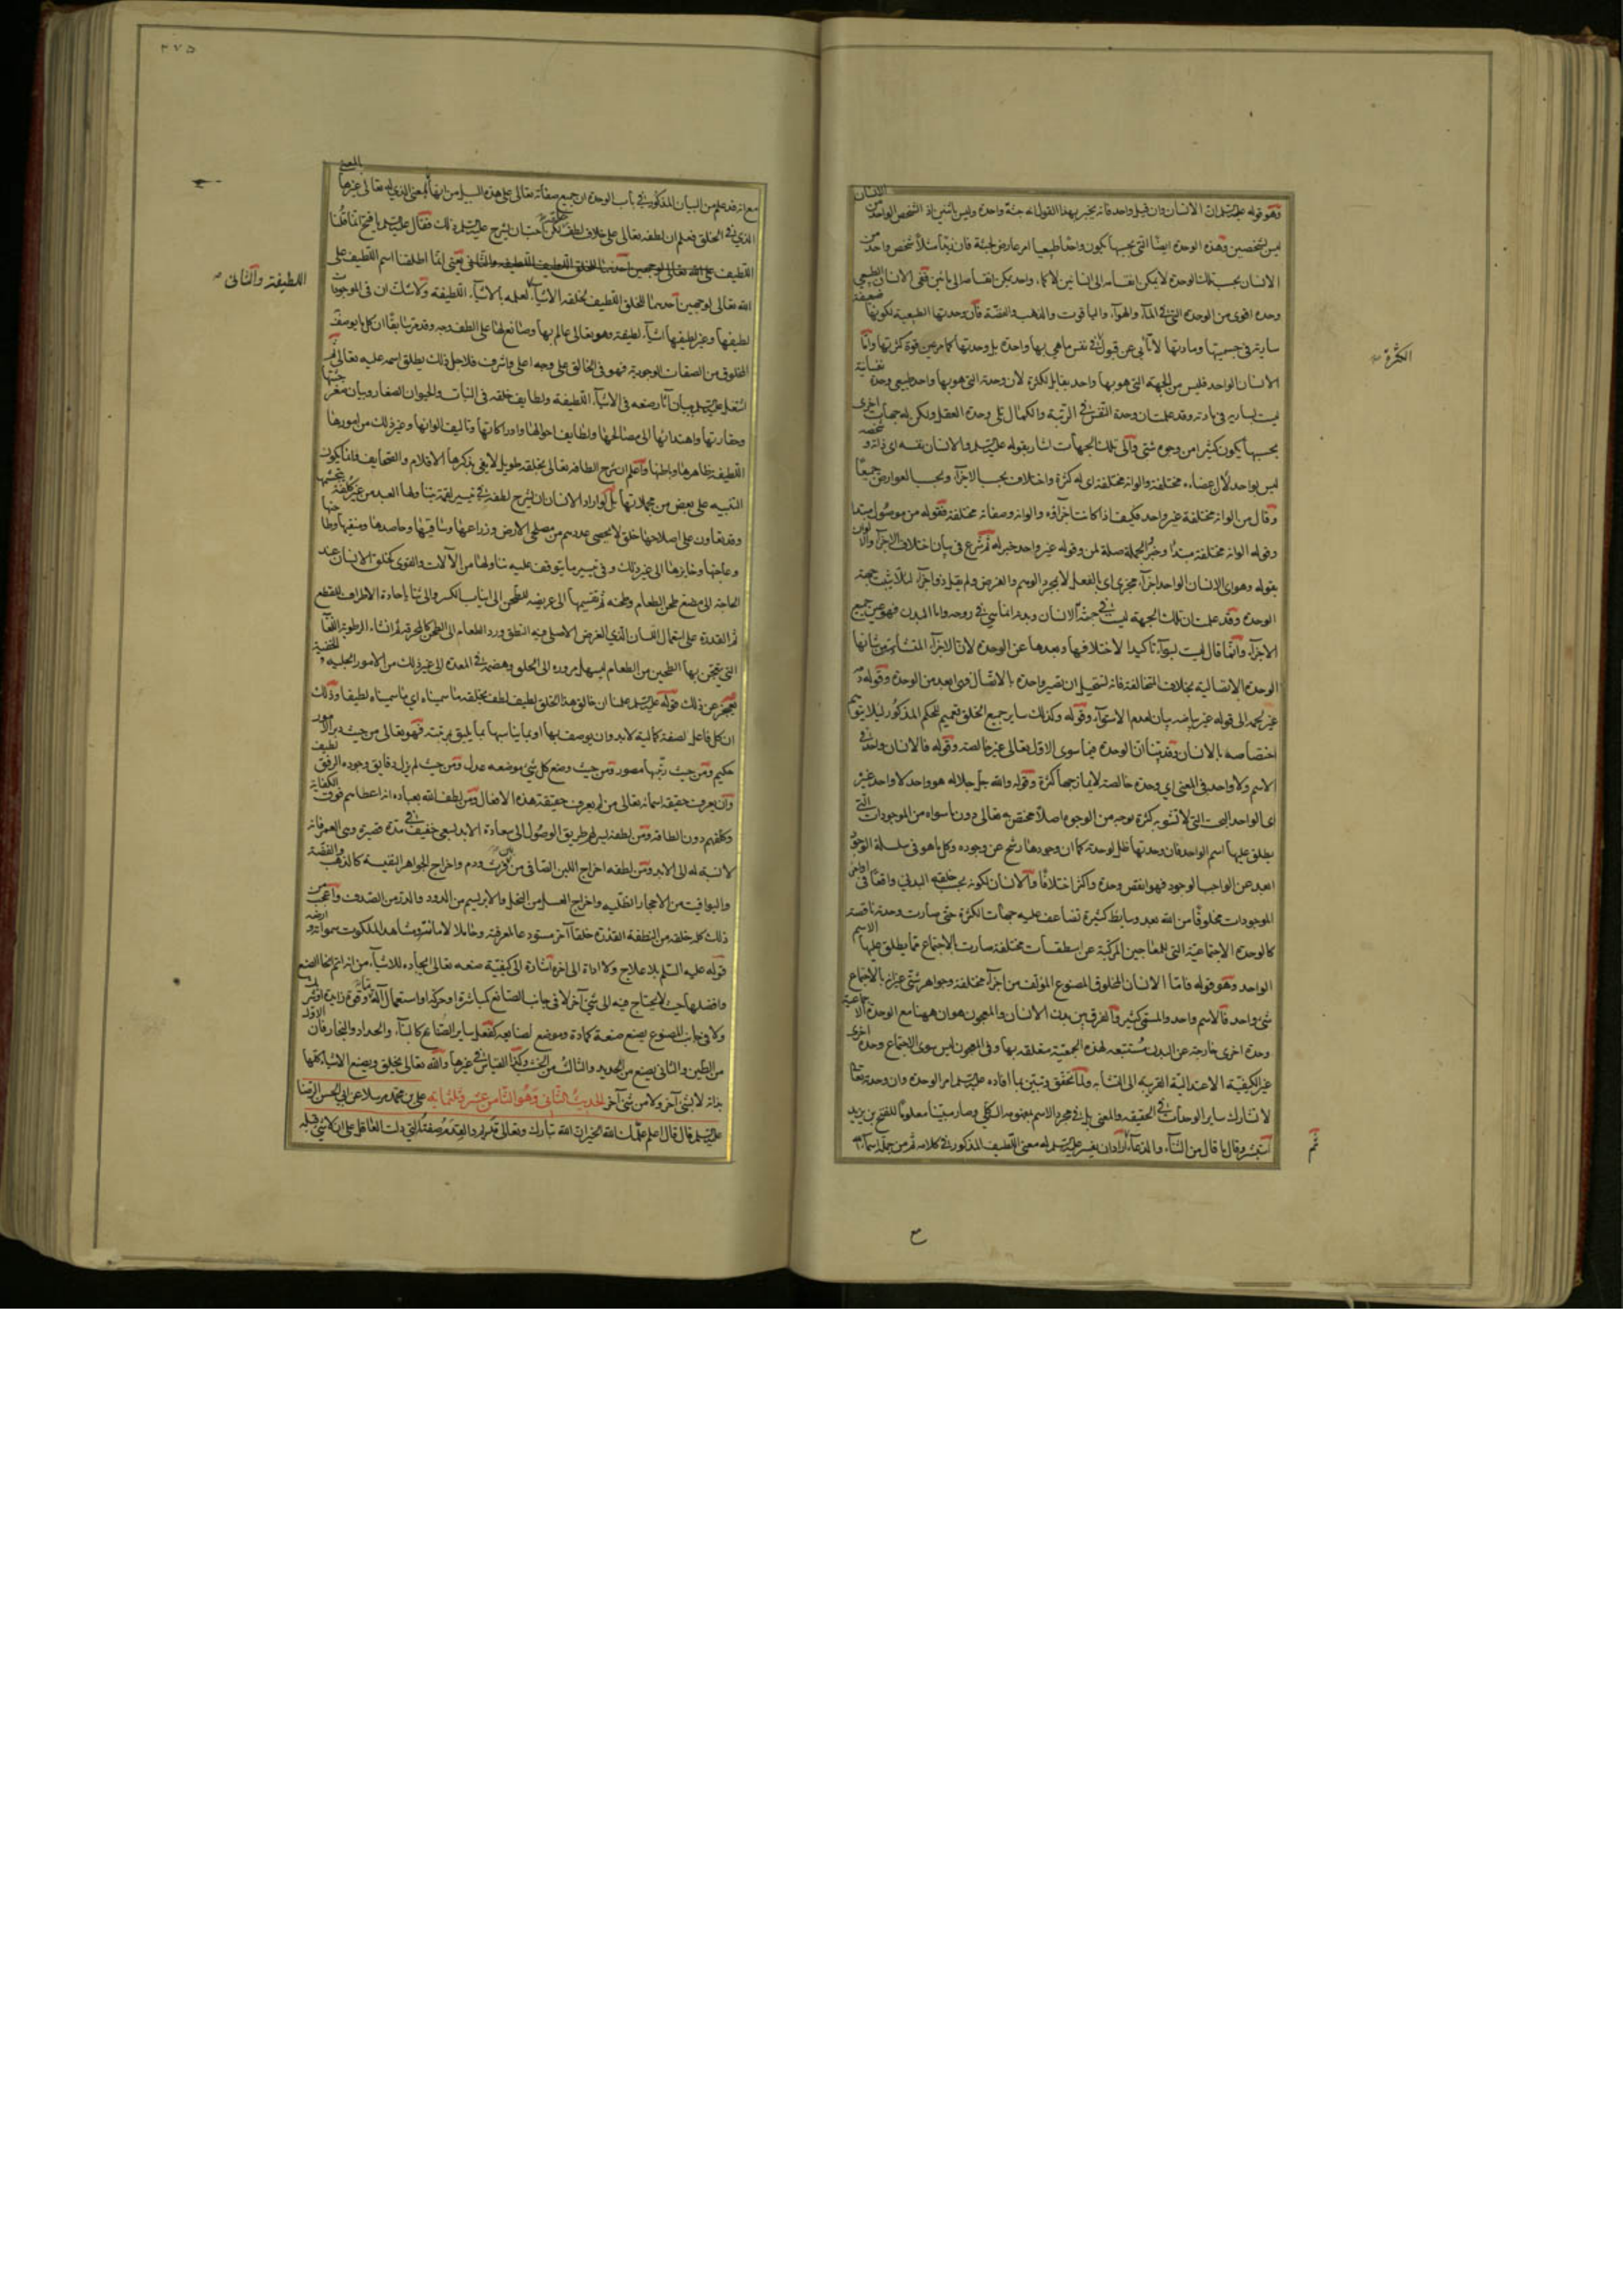 وهو قوله عليه السلم ان الانسان وان قيل واحد فانه يخبر بهذا القول انه جثة واحدة وليس باثنين اذ الشخص الواحد من الانسان
ليس بشخصين وهذه الوحدة ايضا التي بحسبها يكون واحدا طبيعيا امر عارض لجثة فان زيدا مثلا شخص واحد من
الانسان بحسب تلك الوحدة لا يمكن انقسامه الى انسانين لا كماء واحد يمكن انقسامه الى مائين ففي الانسان الطبيعي
وحدة اقوى من الوحدة التي في الماء والهواء والياقوت والذهب والفضة فان وحدتها الطبيعية لكونها ضعيفة
سارية في جسميتها ومادتها لا تأبى عن قبول الكثرة في نفس ما هي بها واحدة بل وحدتها كما مر عين قوة كثرتها واما
الانسان الواحد فليس من الجهة التي هو بها واحد بقابل لكثرة لان وحدته التي هو بها واحد طبيعي وحدة نفسانية
ليست بسارية في مادته وقد علمت ان وحدة النفس في الرتبة والكمال تلي وحدة العقل ولكن له جهات اخرى
بحسبها يكون كثيرا من وجوه شتى والى تلك الجهات اشار بقوله عليه السلم والانسان نفسه اى ذاته و شخصه
ليس بواحد لان اعضاءه مختلفة والوانه مختلفة اى له كثرة واختلاف بحسب الاجزاء وبحسب العوارض جميعا
وقال من الوانه مختلفة غير واحد فكيف اذا كانت اجزاؤه والوانه وصفاته مختلفة فقوله من موصول مبتدا
وقوله الوانه مختلفة مبتدا وخبر والجملة صلة لمن وقوله غير واحد خبر له ثم شرع في بيان اختلاف الاجزاء والالوان
بقوله وهو اى الانسان الواحد اجزاء مجزى اى بالفعل لا بمجرد الوهم والفرض ولم يقل ذو اجزاء لئلا يثبت جهة
الوحدة وقد علمت ان تلك الجهة ليست في جثة الانسان وبدنه انما هي في روحه واما البدن فهو عين جميع
الاجزاء وانما قال ليست بسواء تاكيدا لاختلافها وبعدها عن الوحدة لان الاجزاء المتشابهة من شانها
الوحدة الاتصالية بخلاف المتخالفة فانه تستحيل ان تصير واحدة بالاتصال فهي ابعد من الوحدة وقوله دمه
غير لحمه الى قوله غير بياضه بيان لعدم الاستواء وقوله وكذلك ساير جميع الخلق تعميم للحكم المذكور لئلا يتوهم
اختصاصه بالانسان وقد بينا ان الوحدة فيما سوى الاول تعالى غير خالصة وقوله فالانسان واحد في
الاسم ولا واحد في المعنى اى وحدة خالصة لا يمازجها كثرة وقوله والله جل جلاله هو واحد لا واحد غيره
اى الواحد البحت التي لا تشوبه كثرة بوجه من الوجوه اصلا مختص به تعالى دون ما سواه من الموجودات التي
يطلق عليها اسم الواحد فان وحدتها ظل لوحدته كما ان وجودها رشح عن وجوده وكل ما هو في سلسلة الوجود
ابعد عن الواجب الوجود فهو انقص وحدة واكثر اختلافا والانسان لكونه بحسب خلقه البدني واقعا في اواخر
الموجودات مخلوقا من الله بعد وسايط كثيرة تضاعف عليه جهات الكثرة حتى صارت وحدته ناقصة
كالوحدة الاجتماعية التي للمعاجين المركبة عن اسطقسات مختلفة صارت بالاجتماع مما يطلق عليها الاسم
الواحد وهو قوله فاما الانسان المخلوق المصنوع المؤلف من اجزاء مختلفة وجواهر شتى غير انه بالاجتماع
شىء واحد فالاسم واحد والمسمى كثير والفرق بين بدن الانسان والمعجون هو ان ههنا مع الوحدة الاجتماعية
وحدة اخرى خارجة عن البدن مستتبعة لهذه الجمعية متعلقة بها وفي المعجون ليس سوى الاجتماع وحدة اخرى
غير الكيفية الاعتدالية القريبة الى التشابه ولما تحقق وتبين بما افاده عليه السلم امر الوحدة وان وحدته تعالى
لا تشارك ساير الوحدات في الحقيقة والمعنى بل في مجرد الاسم بمفهومه الكلي وصار مبينا معلوما للفتح بن يزيد
استبشر وقال ما قال من الثناء والدعاء ثم اراد ان يفسر عليه السلم له معنى اللطيف المذكور في كلامه ثم من جملة اسمائه
الكثرة صح
ثم
٢٧٥
مع انه قد علم من البيان المذكور في باب الوحدة ان جميع صفاته تعالى على هذه السبيل من انها بالمعنى الذي له تعالى غيرها بالمعنى
الذي في الخلق فعلم ان لطفه تعالى على خلاف لطف خلقه لكن احب ان يشرح عليه السلم ذلك فقال عليه السلم يا فتح انما قلنا
اللطيف على الله تعالى لوجهين احدهما للخلق اللطيف اللطيفة والثاني يعني انما اطلقنا اسم اللطيف على
الله تعالى لوجهين احدهما للخلق اللطيف لخلقه الاشياء لعلمه بالاشياء اللطيفة ولا شك ان في الموجودات
لطيفها وغير لطيفها اشياء لطيفة وهو تعالى عالم بها وصانع لها على الطف وجه وقد مر سابقا ان كل ما يوصف به
المخلوق من الصفات الوجودية فهو في الخالق على وجه اعلى واشرف فلاجل ذلك يطلق اسمه عليه تعالى ثم
اشتغل عليه السلم ببيان آثار صنعه في الاشياء اللطيفة ولطايف خلقه في النبات والحيوان الصغار وبيان صغر جثتها
وحقارتها واهتدائها الى مصالحها ولطايف احوالها وادراكاتها وتاليف الوانها وغير ذلك من امورها
اللطيفة بظاهرها وباطنها واعلم ان شرح الطافه تعالى بخلقه طويل لا يفي بذكرها الاقلام والصحايف فانما يكون
التنبيه على بعض من مجملاتها بل لو اراد الانسان ان يشرح لطفه في تيسير لقمة يتناولها العبد من غير كلفة يتجشمها
وقد تعاون على اصلاحها خلق لا يحصى عددهم من مصلحي الارض وزراعها وساقيها وحاصدها ومنقيها وطاحنها
وعاجنها وخابزها الى غير ذلك وفي تيسير ما يتوقف عليه تناولها من الآلات والقوى كخلق الانسان عند
الحاجة الى مضغ طحن الطعام وطحنه ثم تقسيمها الى عريضة للطحن الى انياب للكسر والى ثنايا حادة الاطراف للقطع
ثم القدرة على استعمال اللسان الذي الغرض الاصلي فيه النطق ورد الطعام الى الطحن كالمجرفة ثم انشاء الرطوبة اللعابية
التي يتعجن بها الطحين من الطعام ليسهل مروره الى الحلق وهضمه في المعدة الى غير ذلك من الامور الجلية و الخفية
لعجز عن ذلك قوله عليه السلم علمنا ان خالق هذا الخلق لطيف لطف بخلقه ما سميناه اى ما سميناه لطيفا وذلك
ان كل فاعل لصفة كمالية لا بد وان يوصف بها او بما يناسبها بما يليق بمرتبته فهو تعالى من حيث دبر الامور
حكيم ومن حيث رتبها مصور ومن حيث وضع كل شىء موضعه عدل ومن حيث لم يزل دقايق وجوده الرفق لطيف
ولن يعرف حقيقة اسمائه تعالى من لم يعرف حقيقة هذه الافعال ومن لطف الله بعباده انه اعطاهم فوق الكفاية
وكلفهم دون الطاقة ومن لطفه تيسيرهم طريق الوصول الى سعادة الابد بسعي خفيف في مدة قصيرة وهي العمر فانه
لا نسبة له الى الابد ومن لطفه اخراج اللبن الصافي من بين فرث ودم واخراج الجواهر النفيسة كالذهب والفضة
واليواقيت من الاحجار الصلبة واخراج العسل من النحل والابريسم من الدود والدر من الصدف واعجب من
ذلك كله خلقه من النطفة القذرة خلقا آخر مستودعا لمعرفته وحاملا لامانته ومشاهدا لملكوت سمواته و ارضه
قوله عليه السلم بلا علاج ولا اداة الى اخره اشارة الى كيفية صنعه تعالى ايجاده للاشياء من انه اتم انحاء الصنع
وافضلها حيث لا يحتاج فيه الى شىء آخر لا في جانب الصانع كمباشرة او حركة او استعمال آلة وقوة زايدة او شرك
ولا في جانب المصنوع يصنع صنعة كمادة وموضع لصنايعه كفعل ساير الصناع كالبناء والحداد والنجار فان الاول
من الطين والثاني يصنع من الحديد والثالث من الخشب وكذا القياس في غيرها والله تعالى يخلق ويصنع الاشياء كلها
بذاته لا بشىء آخر ولا من شىء آخر الحديث الثاني وهو الثامن عشر وثلثمايه علي بن محمد مرسلا عن ابي الحسن الرضا
عليه السلم قال قال اعلم علمك الله الخير ان الله تبارك وتعالى قديم والقدم صفته التي دلت العاقل على ان لا شىء قبله
اللطيفة والثاني صح